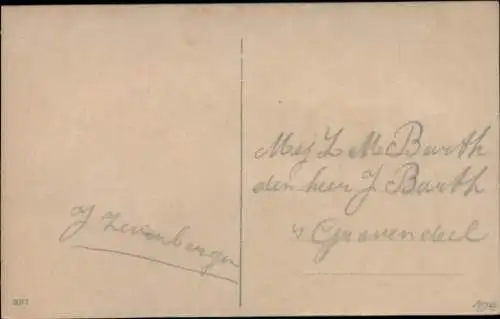 J Zevenbergen
Mej L M Barth
den heer J Barth
's Gravendeel